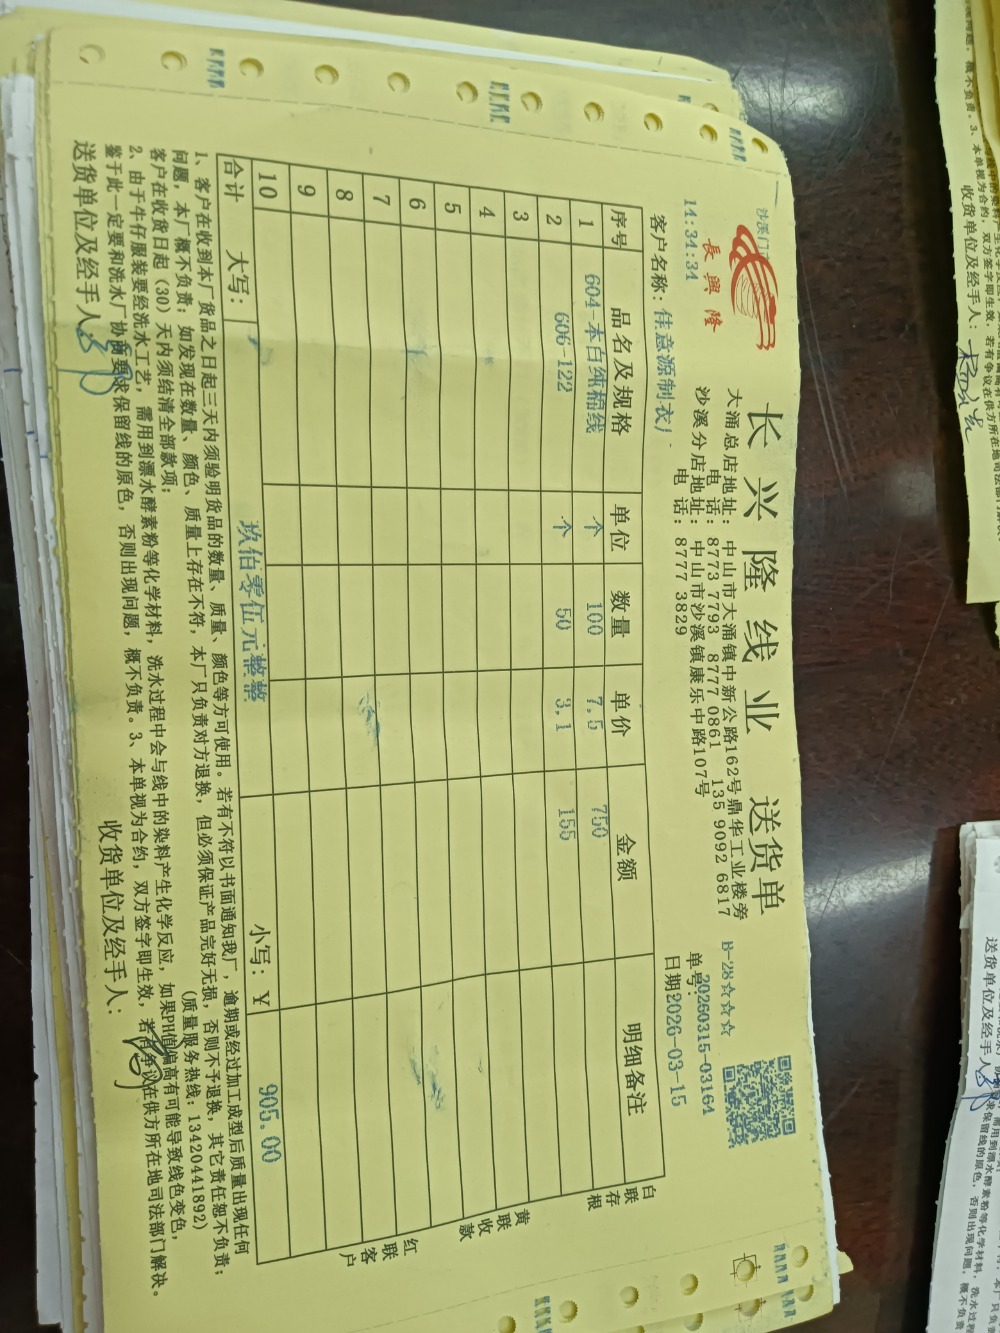 长兴隆线业 送货单
沙溪门
長興隆
14:34:34
大涌总店地址：中山市大涌镇中新公路162号鼎华工业楼旁
电 话：8773 7793 8777 0861 135 9092 6817
沙溪分店地址：中山市沙溪镇康乐中路107号
电 话：8777 3829
B-28☆☆☆
单号：20260315-03164
客户名称：佳意源制衣厂
日期2026-03-15
序号 品名及规格 单位 数量 单价 金额 明细备注
1 604-本白纯棉线 个 100 7.5 750
2 606-122 个 50 3.1 155
3
4
5
6
7
8
9
10
合计 大写： 玖佰零伍元整整 小写：￥ 905.00
白联存根
黄联收款
红联客户
1、客户在收到本厂货品之日起三天内须验明货品的数量、质量、颜色等方可使用。若有不符以书面通知我厂，逾期或经过加工成型后质量出现任何
问题，本厂概不负责；如发现在数量、颜色、质量上存在不符，本厂只负责对方退换，但必须保证产品完好无损，否则不予退换，其它责任恕不负责；
客户在收货日起（30）天内须结清全部款项； (质量服务热线：13420441892)
2、由于牛仔服装要经洗水工艺，需用到漂水酵素粉等化学材料，洗水过程中会与线中的染料产生化学反应，如果PH值偏高有可能导致线色变色，
鉴于此一定要和洗水厂协商要求保留线的原色，否则出现问题，概不负责。3、本单视为合约，双方签字即生效，若有争议在供方所在地司法部门解决。
送货单位及经手人： 收货单位及经手人：